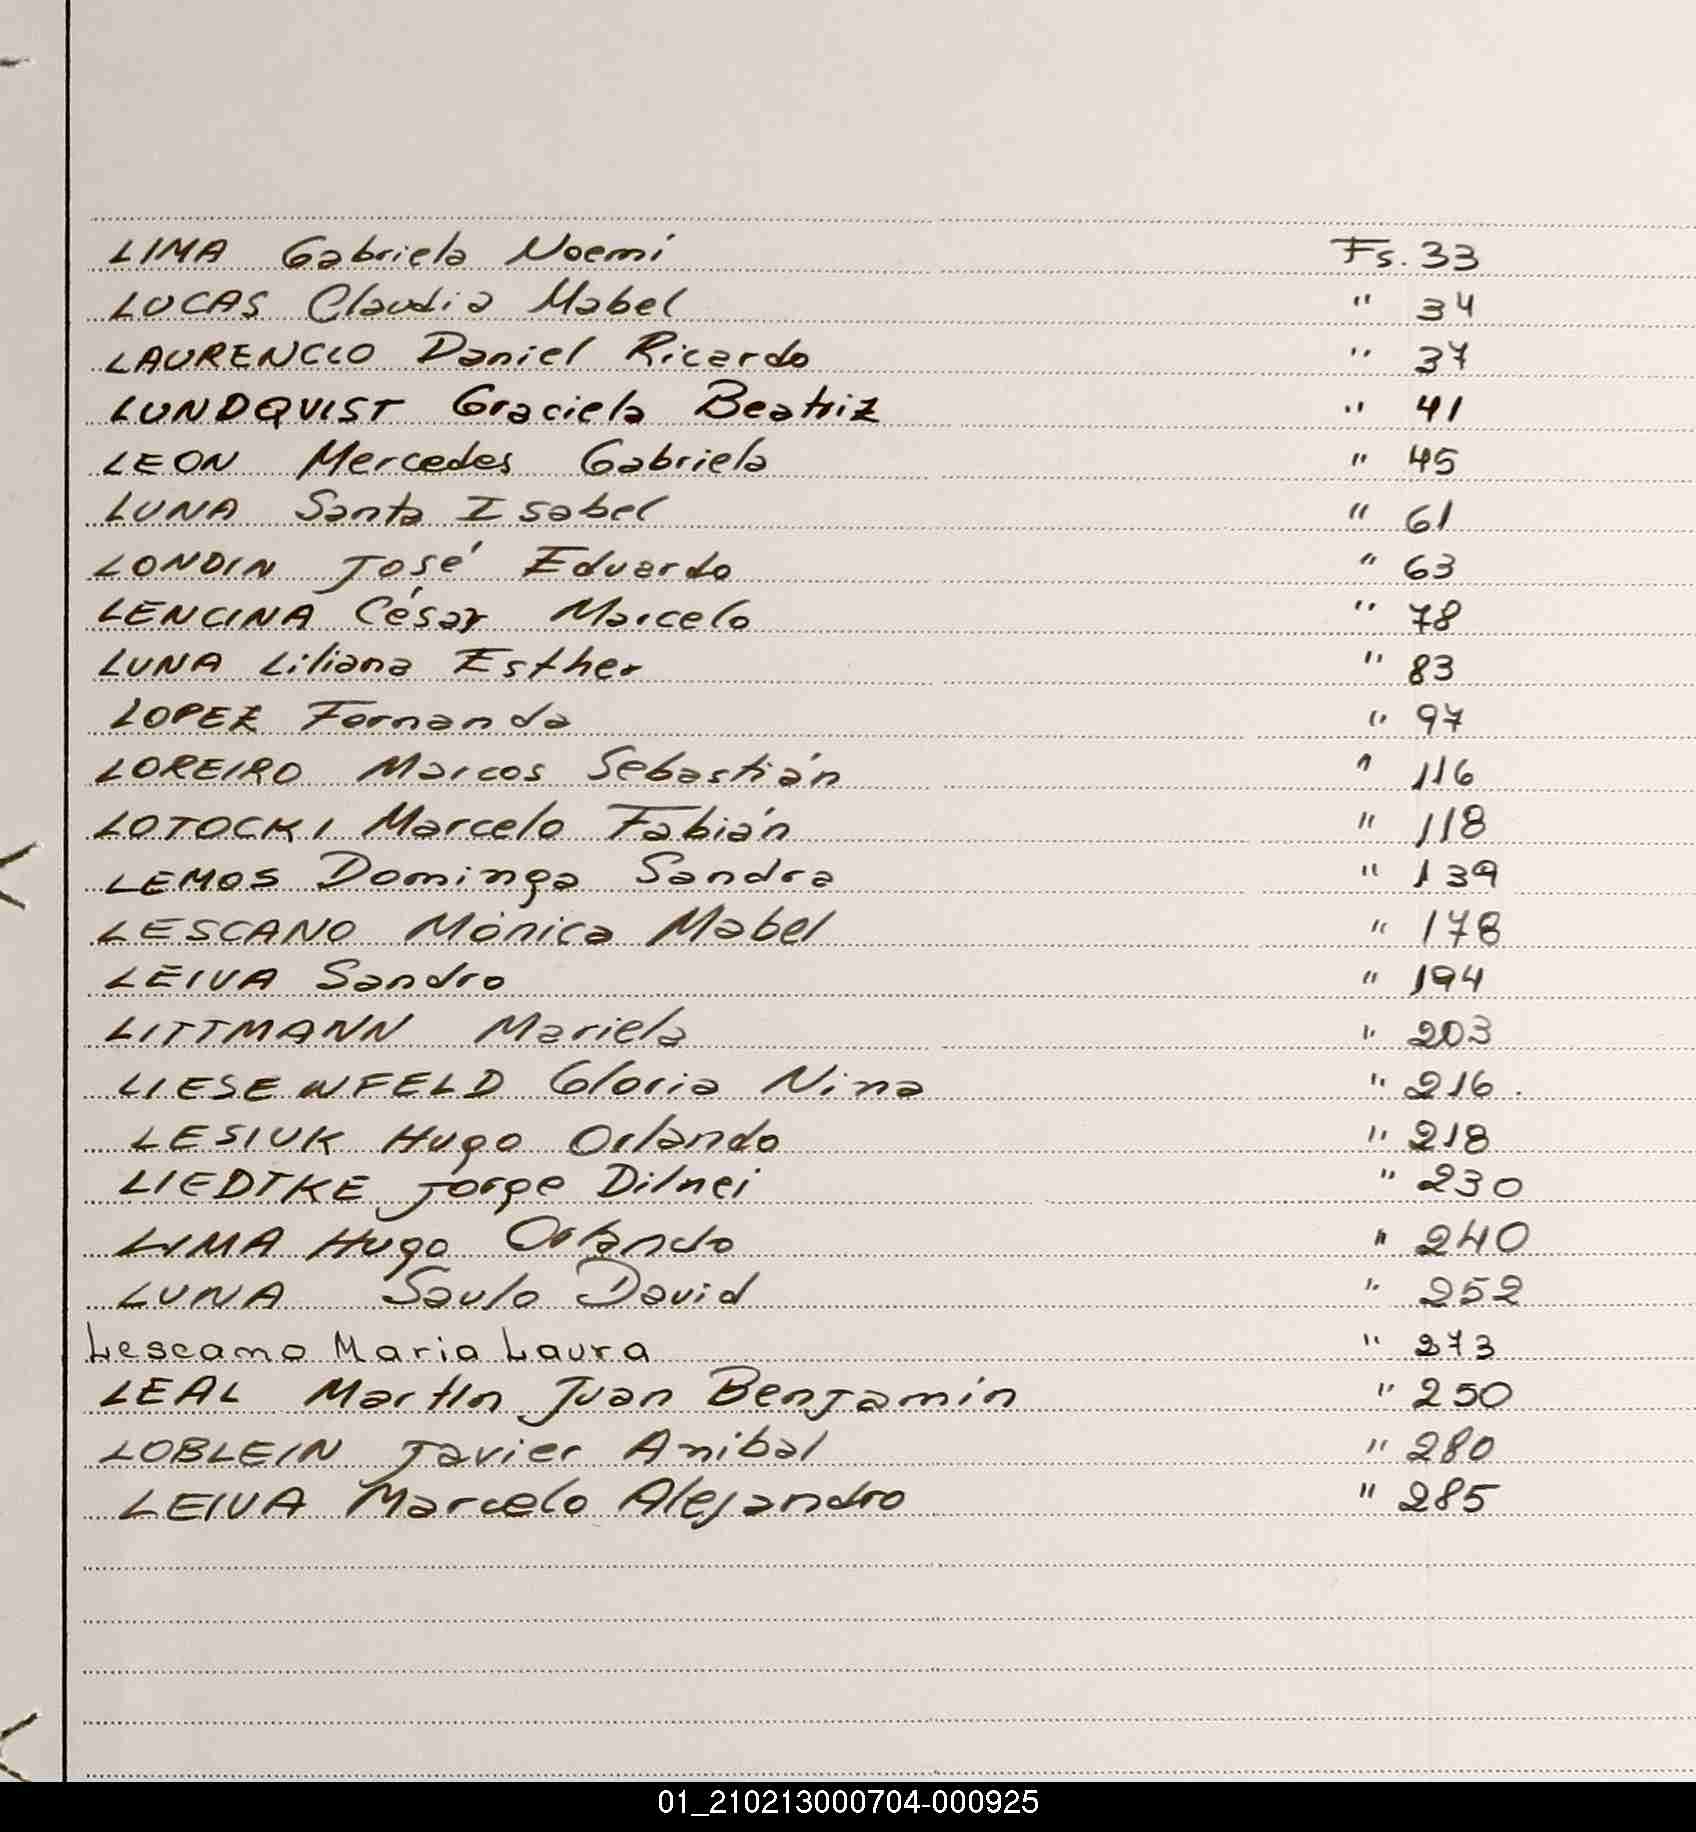 LIMA Gabriela Noemí Fs. 33
LUCAS Claudia Mabel " 34
LAURENCIO Daniel Ricardo " 37
LUNDQVIST Graciela Beatriz " 41
LEON Mercedes Gabriela " 45
LUNA Santa Isabel " 61
LONDIN José Eduardo " 63
LENCINA César Marcelo " 78
LUNA Liliana Esther " 83
LOPEZ Fernanda " 97
LOREIRO Marcos Sebastián " 116
LOTOCKI Marcelo Fabián " 118
LEMOS Dominga Sandra " 139
LESCANO Mónica Mabel " 178
LEIVA Sandro " 194
LITTMANN Mariela " 203
LIESENFELD Gloria Nina " 216.
LESIUK Hugo Orlando " 218
LIEDTKE Jorge Dilnei " 230
LIMA Hugo Orlando " 240
LUNA Saulo David " 252
Lescano Maria Laura " 273
LEAL Martín Juan Benjamín " 250
LOBLEIN Javier Anibal " 280
LEIVA Marcelo Alejandro " 285
01_210213000704-000925